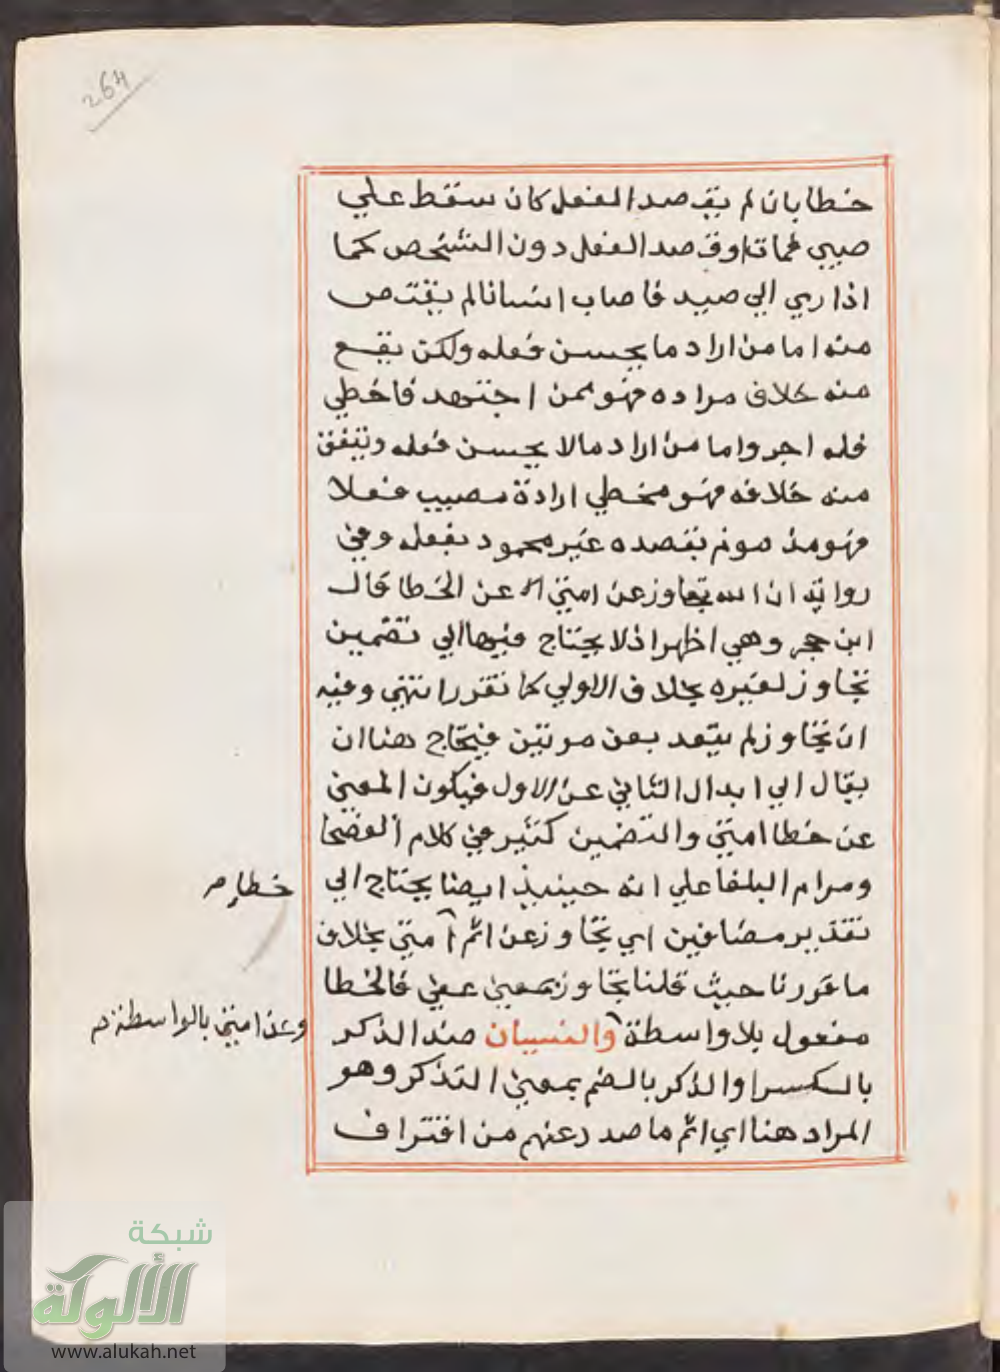 264
خطا بان لم يقصد الفعل كان سقط علي
صبي فمات او قصد الفعل دون الشخص كما
اذا رمي الي صيد فاصاب انسانا لم يقتص
منه اما من اراد ما يحسن فعله ولكن يقع
منه خلاف مراده فهو ممن اجتهد فاخطي
فله اجر واما من اراد ما لا يحسن فعله ويتفق
منه خلافه فهو مخطي ارادة مصيب فعلا
فهو مذموم بقصده غير محمود بفعله وفي
رواية ان الله تجاوز عن امتي عن الخطا قال
ابن حجر وهي اظهر اذ لا يحتاج فيها الي تضمين
تجاوز لغيره بخلاف الاولي كما تقرر انتهي وفيه
ان تجاوز لم يتعد بعن مرتين فيحتاج هنا ان
يقال الي ابدال الثاني عن الاول فيكون المعني
عن خطا امتي والتضمين كثير في كلام الفصحا
ومرام البلغا علي انه حينيذ ايضا يحتاج الي
تقدير مضافين اي تجاوز عن اثم امتي بخلاف
خطا م
ما قررنا حيث قلنا تجاوز بمعني عفي فالخطا
مفعول بلا واسطة والنسيان ضد الذكر
وعن امتي بالواسطة م
بالكسر او الذكر بالضم بمعني التذكر وهو
المراد هنا اي اثم ما صدر عنهم من اقتراف
شبكة
الألوكة
www.alukah.net